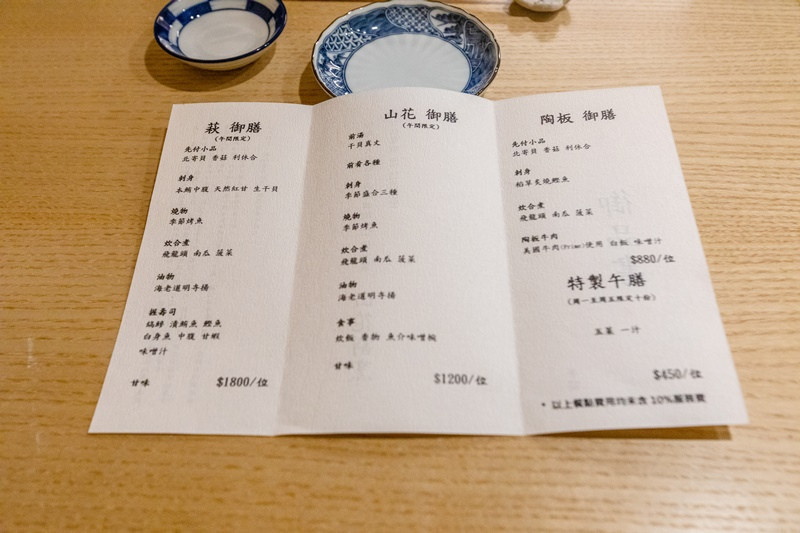 萩 御膳
(午間限定)
先付小品
北寄貝 香菇 利休合
刺身
本鮪中腹 天然紅甘 生干貝
燒物
季節烤魚
炊合煮
飛龍頭 南瓜 菠菜
油物
海老道明寺揚
握壽司
縞鰺 漬鮪魚 鰹魚
白身魚 中腹 甘蝦
味噌汁
甘味
$1800/位
山花 御膳
(午間限定)
前湯
干貝真丈
前肴各種
刺身
季節盛合三種
燒物
季節烤魚
炊合煮
飛龍頭 南瓜 菠菜
油物
海老道明寺揚
食事
炊飯 香物 魚介味噌椀
甘味
$1200/位
陶板 御膳
先付小品
北寄貝 香菇 利休合
刺身
稻草炙燒鰹魚
炊合煮
飛龍頭 南瓜 菠菜
陶板牛肉
美國牛肉(Prime)使用 白飯 味噌汁
$880/位
特製午膳
(周一至周五限定十份)
五菜 一汁
$450/位
• 以上餐點費用均未含 10%服務費